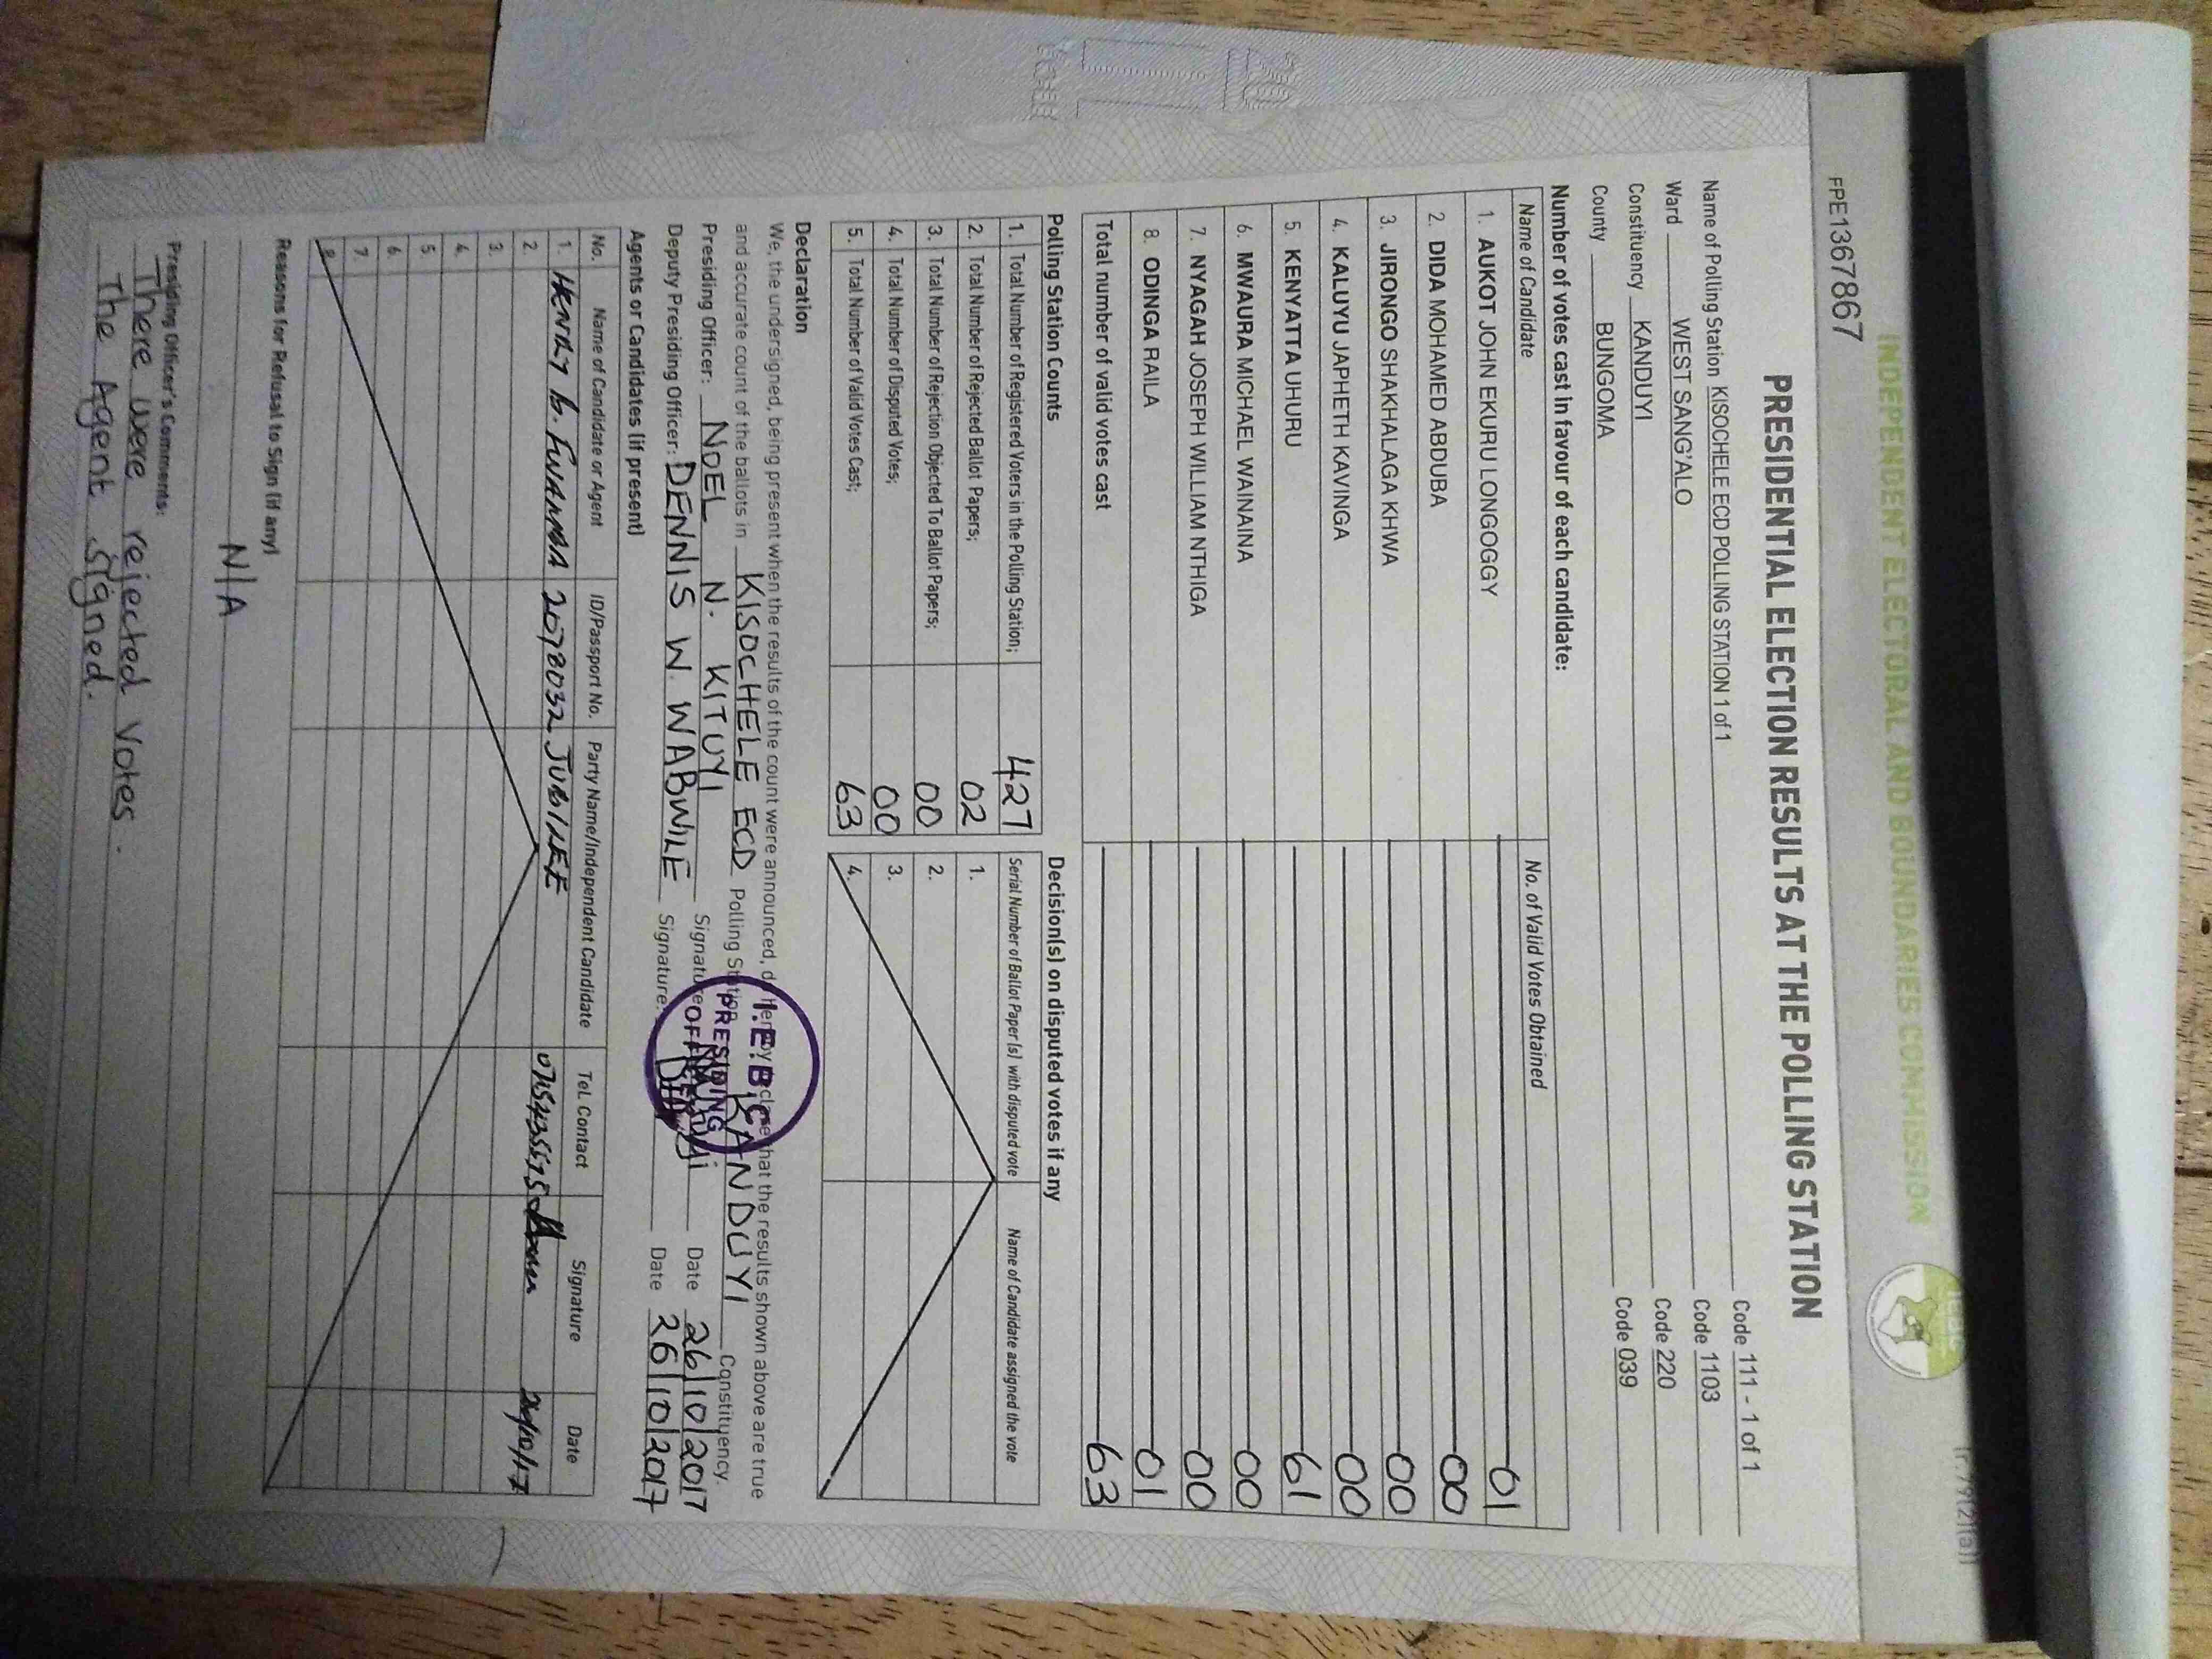 INDEPENDENT ELECTORAL AND BOUNDARIES COMMISSION
FPE1367867
PRESIDENTIAL ELECTION RESULTS AT THE POLLING STATION
Name of Polling Station KISOCHELE ECD POLLING STATION 1 of 1 Code 111 - 1 of 1
Ward WEST SANG'ALO Code 1103
Constituency KANDUYI Code 220
County BUNGOMA Code 039
Number of votes cast in favour of each candidate:
Name of Candidate No. of Valid Votes Obtained
1. AUKOT JOHN EKURU LONGOGGY 01
2. DIDA MOHAMED ABDUBA 00
3. JIRONGO SHAKHALAGA KHWA 00
4. KALUYU JAPHETH KAVINGA 00
5. KENYATTA UHURU 61
6. MWAURA MICHAEL WAINAINA 00
7. NYAGAH JOSEPH WILLIAM NTHIGA 00
8. ODINGA RAILA 01
Total number of valid votes cast 63
Polling Station Counts Decision(s) on disputed votes if any
1. Total Number of Registered Voters in the Polling Station; 427 Serial Number of Ballot Paper (s) with disputed vote Name of Candidate assigned the vote
2. Total Number of Rejected Ballot Papers; 02 1.
3. Total Number of Rejection Objected To Ballot Papers; 00 2.
4. Total Number of Disputed Votes; 00 3.
5. Total Number of Valid Votes Cast; 63 4.
Declaration
We, the undersigned, being present when the results of the count were announced, do hereby declare that the results shown above are true
and accurate count of the ballots in KISOCHELE ECD Polling Station KANDUYI Constituency.
Presiding Officer: NOEL N. KITUYI Signature Date 26/10/2017
Deputy Presiding Officer: DENNIS W. WABWILE Signature: Date 26/10/2017
I.E.B.C
PRESIDING
Agents or Candidates (if present)
No. Name of Candidate or Agent ID/Passport No. Party Name/Independent Candidate Tel. Contact Signature Date
1. HENRY B. 2078032 JUBILEE 26/10/17
2.
3.
4.
5.
6.
7.
8.
Reasons for Refusal to Sign (if any)
N/A
Presiding Officer's Comments:
There were rejected votes.
The Agent signed.